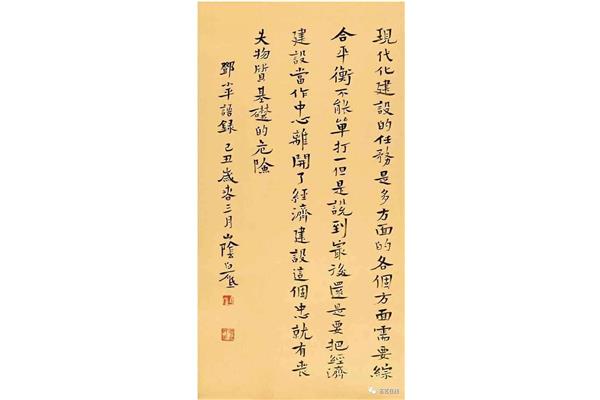 現代化建設的任務是多方面的各個方面需要綜
合平衡不能單打一但是說到最後還是要把經濟
建設當作中心離開了經濟建設這個中心就有喪
失物質基礎的危險
鄧小平語錄 己丑歲春三月山陰白砥